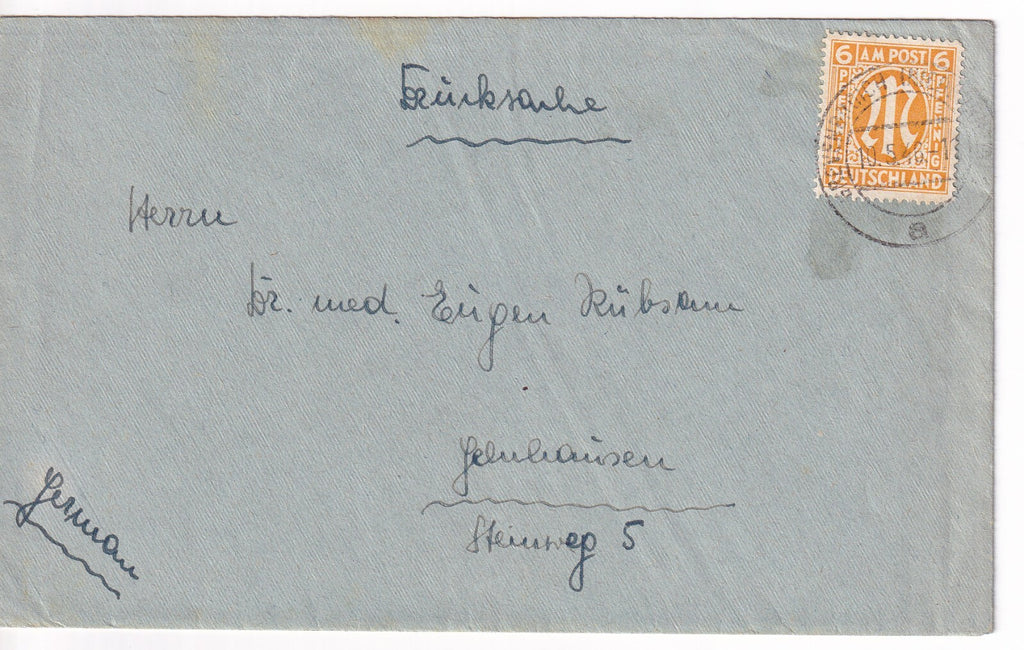 Drucksache
6 AM POST 6
PFENNIG
DEUTSCHLAND
a
Herrn
Dr. med. Eugen Rübsam
Gelnhausen
Steinweg 5
German